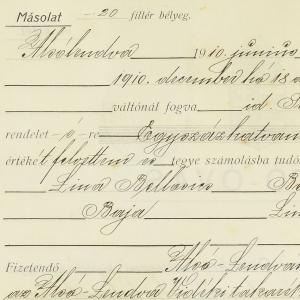 Másolat -20 fillér bélyeg.
Alsólendva, 1910. junius
1910. december hó 18 a
váltónál fogva id.
rendelet -é- re Egyszázhatvan
értékét felvettem és tegye számolásba tudó
Lina Bellosics
Baja Lin
Fizetendő Alsó-Lendva
az Alsó-Lendva Vidéki takarék